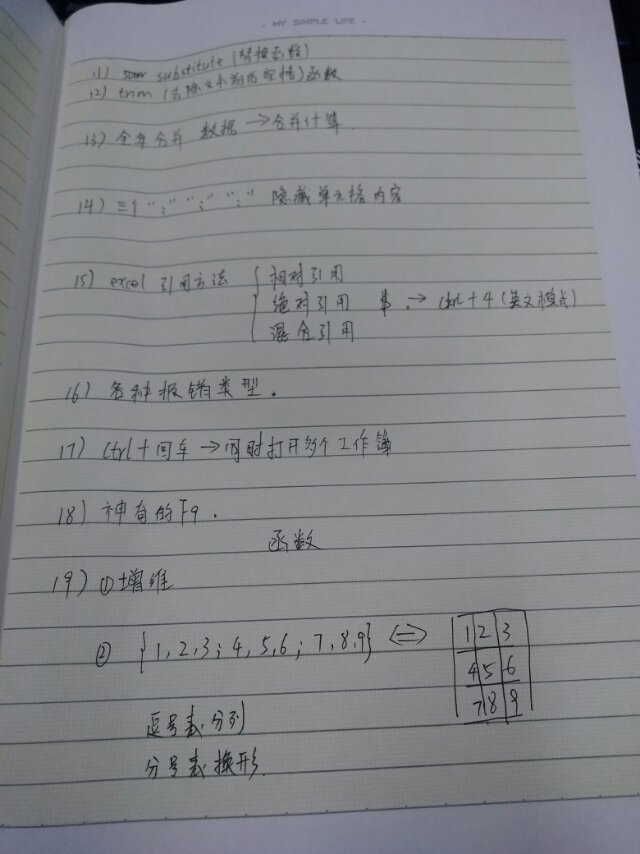 MY SIMPLE LIFE
11) substitute (替换函数)
12) trim (去除文本前后空格) 函数
13) 合并 数据 → 合并计算.
14) 三个 ";" ";" ";" 隐藏单元格内容
15) excel 引用方法 { 相对引用
绝对引用 $. → Ctrl + 4 (英文模式)
混合引用
16) 各种报错类型.
17) Ctrl + 回车 → 同时打开多个工作簿
18) 神奇的F9.
函数
19) ① 增维
② {1,2,3; 4,5,6; 7,8,9} ⇔
1 2 3
4 5 6
7 8 9
逗号表分列
分号表换形.